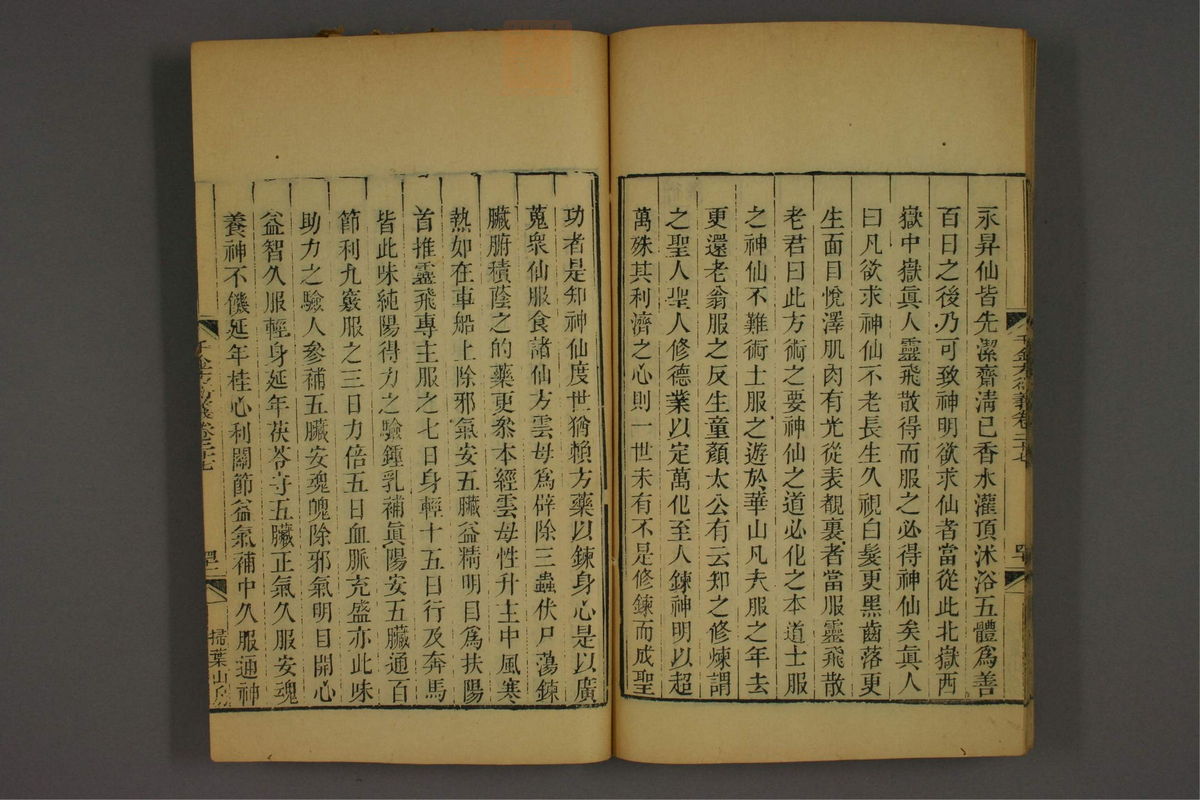 永昇仙皆先潔齋淸已香水灌頂沐浴五體爲善
百日之後乃可致神明欲求仙者當從此北嶽西
嶽中嶽眞人靈飛散得而服之必得神仙矣眞人
曰凡欲求神仙不老長生久視白髮更黑齒落更
生面目悅澤肌肉有光從表覩裏者當服靈飛散
老君曰此方術之要神仙之道必化之本道士服
之神仙不難術士服之遊於華山凡夫服之年去
更還老翁服之反生童顏太公有云知之修煉謂
之聖人聖人修德業以定萬化至人鍊神明以超
萬殊其利濟之心則一世未有不是修鍊而成聖
功者是知神仙度世猶賴方藥以鍊身心是以廣
蒐衆仙服食諸仙方雲母爲辟除三蟲伏尸蕩鍊
臟腑積蔭之的藥更叅本經雲母性升主中風寒
熱如在車船上除邪氣安五臟益精明目爲扶陽
首推靈飛專主服之七日身輕十五日行及奔馬
皆此味純陽得力之驗鍾乳補眞陽安五臟通百
節利九竅服之三日力倍五日血脈充盛亦此味
助力之驗人參補五臟安魂魄除邪氣明目開心
益智久服輕身延年茯苓守五臟正氣久服安魂
養神不饑延年桂心利關節益氣補中久服通神
千金方衍義卷二十七
掃葉山房